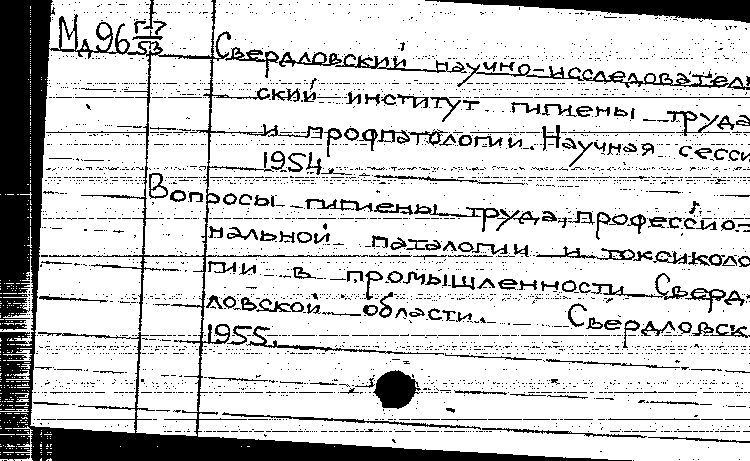 Мд96 Г-7
53
Свердловский научно-исследователь
ский институт гигиены труда
и профпатологии. Научная сесси
1954.
Вопросы гигиены труда, профессио-
нальной паталогии и токсиколо
гии в промышленности Сверд-
ловской области. Свердловск
1955.